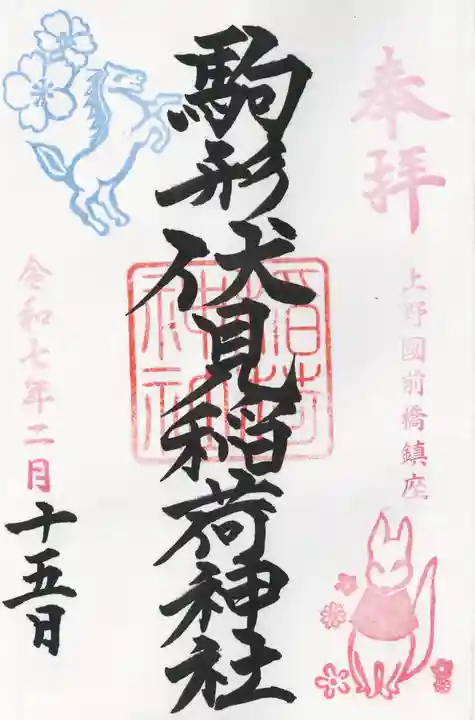 奉拝
上野國前橋鎮座
駒形伏見稲荷神社
稲荷神社
令和七年二月
十五日